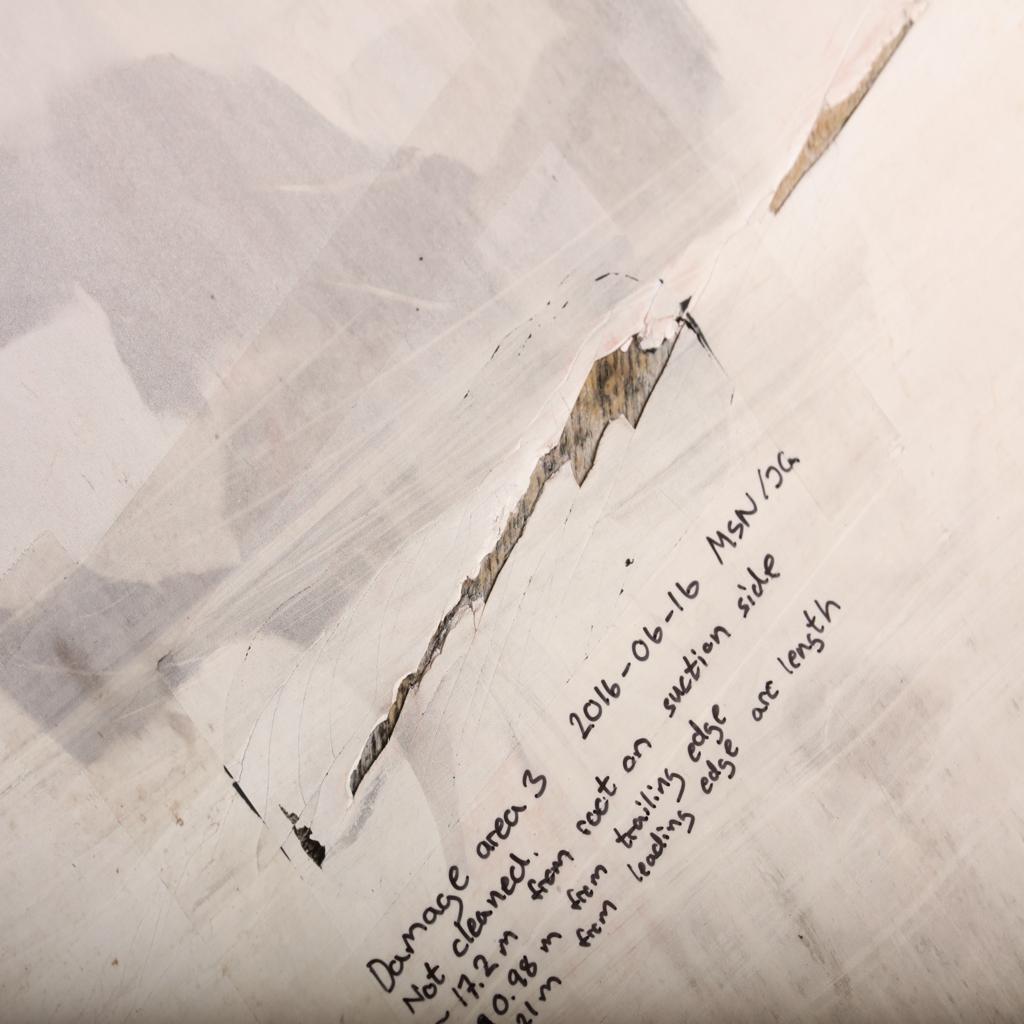 Damage area 3 2016-06-16 MSN/JG
Not cleaned.
~ 17.2 m from root on suction side
0.98 m from trailing edge
21 m from leading edge arc length